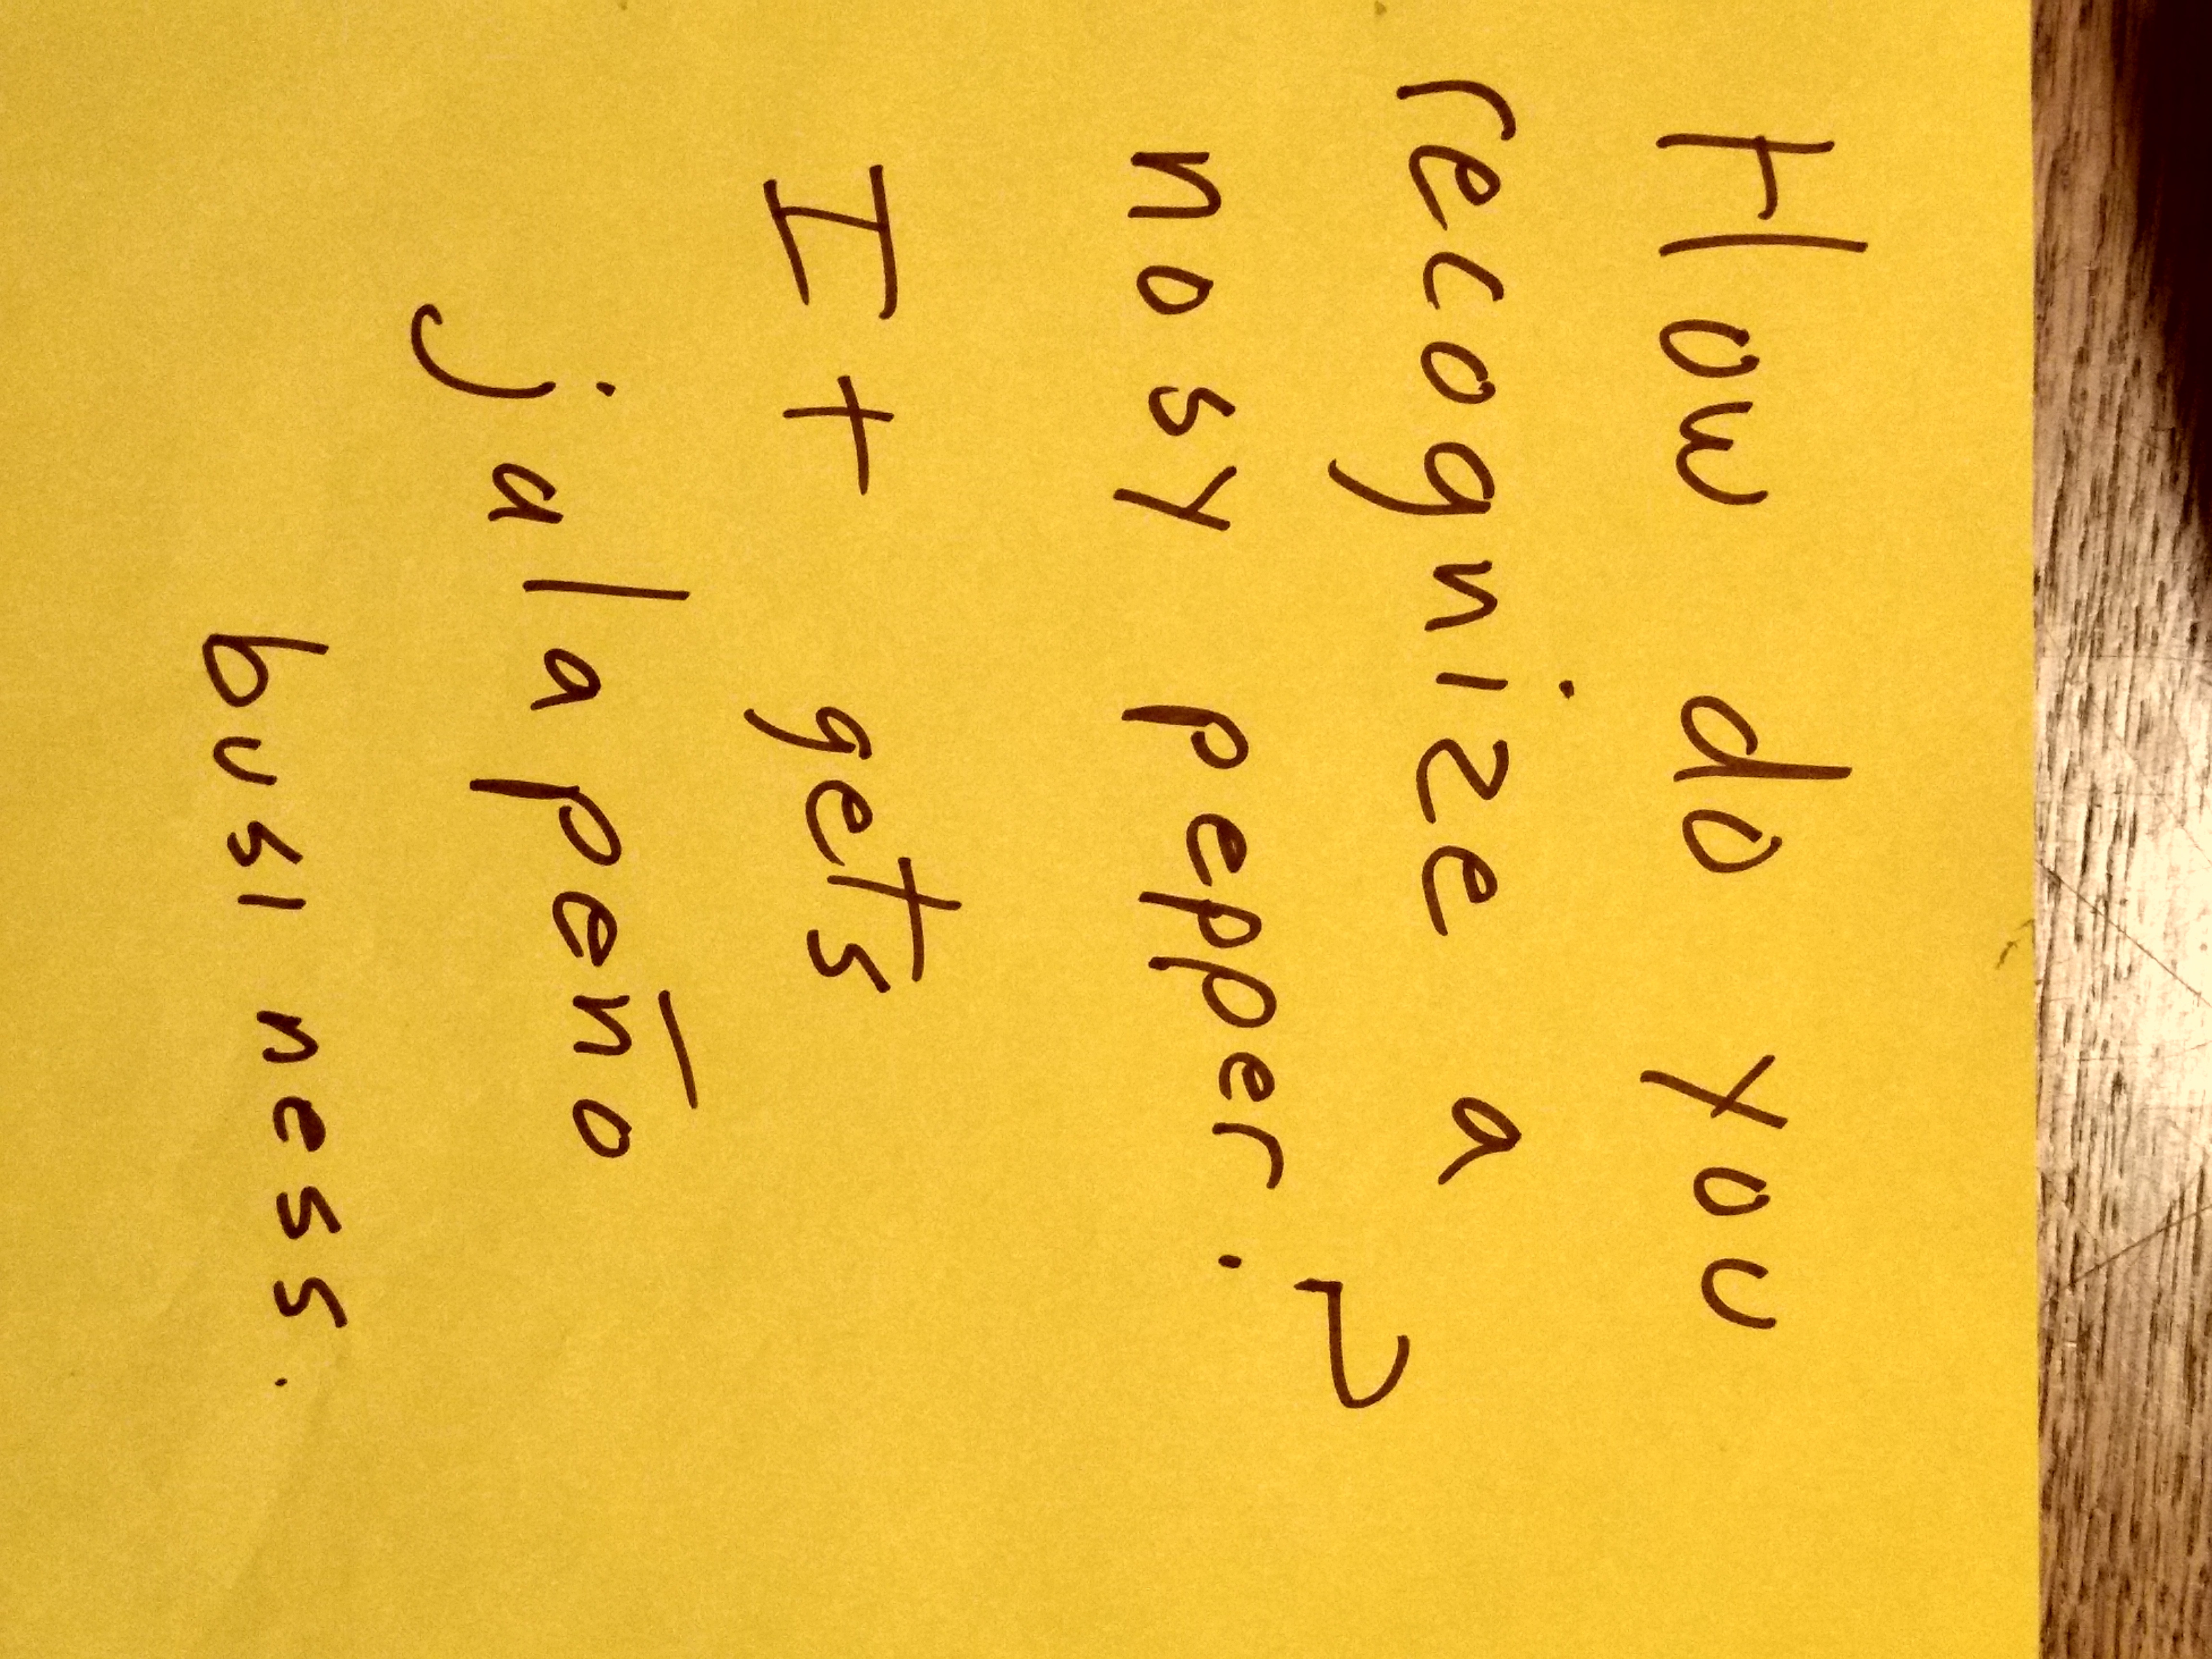 How do you
recognize a
nosy pepper?
It gets
jalapeño
business.